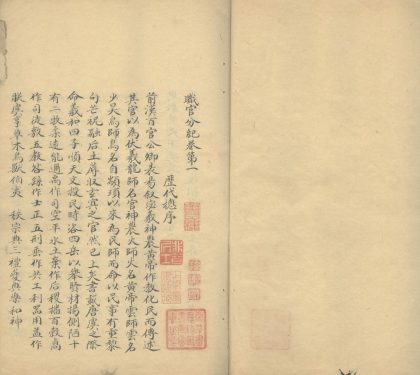 職官分紀卷第一
歷代總序
前漢百官公卿表易叙宓羲神農黄帝作教化民而傳述
其官以為伏羲龍師名官神農火師火名黄帝雲師雲名
少昊鳥師鳥名自顓頊以來為民師而命以民事有重黎
句芒祝融后土蓐收玄冥之官然已上矣書載唐虞之際
命羲和四子順天文授民時洛四岳以舉賢材揚側陋十
有二牧柔遠能邇禹作司空平水土棄作后稷播百穀卨
作司徒敷五教咎繇作士正五刑垂作共工利器用益作
朕虞育草木鳥獸伯夷 秩宗典三禮夔典樂和神